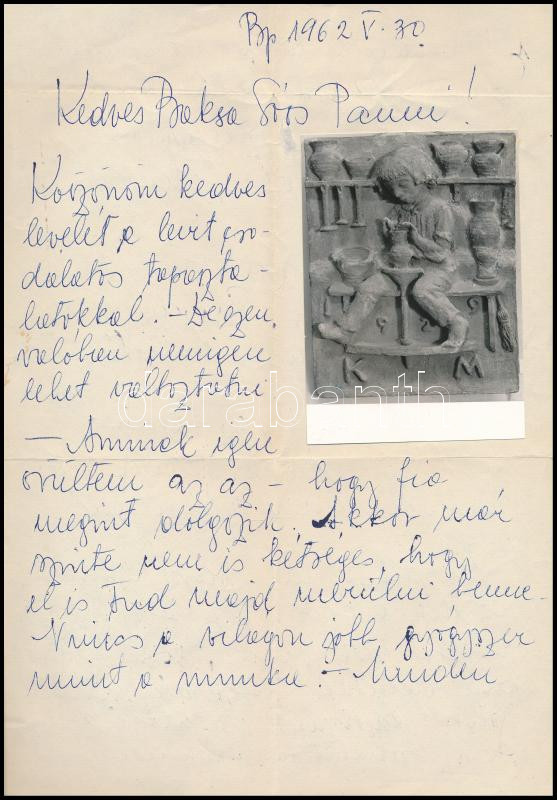 Bp 1962 V. 30.
Kedves Baksa Soós Panni!
Köszönöm kedves
levelét, a leírt cso-
dálatos tapaszta-
latokkal. – De ezen
valóban nemigen
lehet változtatni
– Annak igen
örültem az az – hogy fia
megint dolgozik. Akkor már
szinte nem is kétséges, hogy
el is tud majd merülni benne.
Nincs a világon jobb gyógyszer
mint a munka. – Minden
1999
K M
darabanth